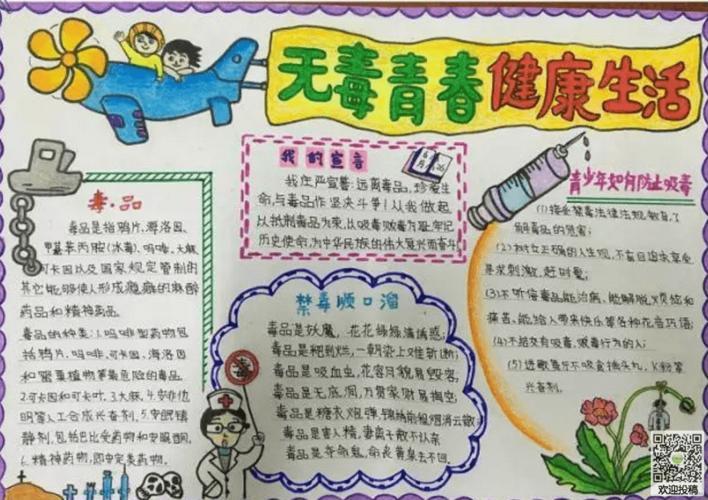 无毒青春健康生活
我的宣言
6月 26
我庄严宣誓:远离毒品,珍爱生
命,与毒品作坚决斗争!从我做起
以抵制毒品为荣,以吸毒贩毒为耻,牢记
历史使命,为中华民族的伟大复兴而奋斗
毒·品
毒品是指鸦片,海洛因,
甲基苯丙胺(冰毒),吗啡,大麻,
可卡因以及国家规定管制的
其它能够使人形成瘾癖的麻醉
药品和精神药品。
毒品的种类:1.吗啡型药物包
括鸦片,吗啡,可卡因,海洛因
和罂粟植物等最危险的毒品
2.可卡因和可卡叶,3.大麻,4.安非他
明等人工合成兴奋剂,5.安眠镇
静剂,包括巴比妥药物和安眠酮,
6.精神药物,即安定类药物。
禁毒顺口溜
毒品是妖魔,花花绿绿满诱惑;
毒品是粑到烂,一朝染上难斩断;
毒品是吸血虫,花容月貌易毁容;
毒品是无底洞,万贯家财易掏空;
毒品是糖衣炮弹,锦绣前程烟消云散;
毒品是害人精,妻离子散不认亲
毒品是夺命鬼,命丧黄泉去不回。
毒
青少年如何防止吸毒
(1)接受禁毒法律法规教育,了
解毒品的危害;
(2)树立正确的人生观,不盲目追求享受,
寻求刺激,赶时髦;
(3)不听信毒品能治病,能解脱烦恼和
痛苦,能给人带来快乐等各种花言巧语;
(4)不结交有吸毒,贩毒行为的人;
(5)进歌舞厅不吸食摇头丸,K粉等
兴奋剂.
欢迎投稿